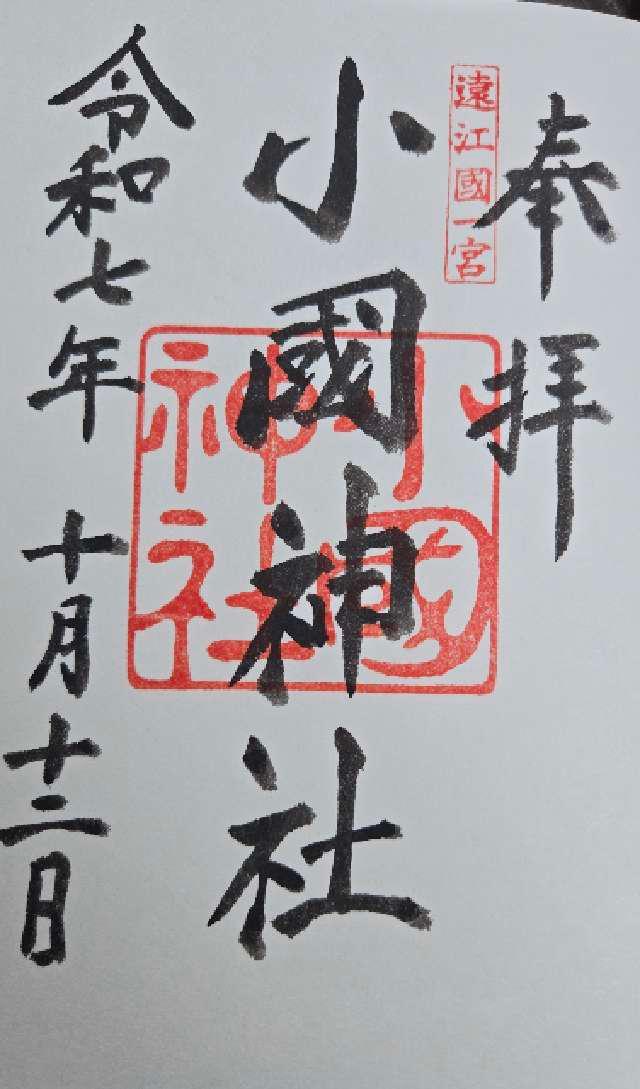 奉拝
遠江國一宮
小國神社
小國神社
令和七年 十月十二日